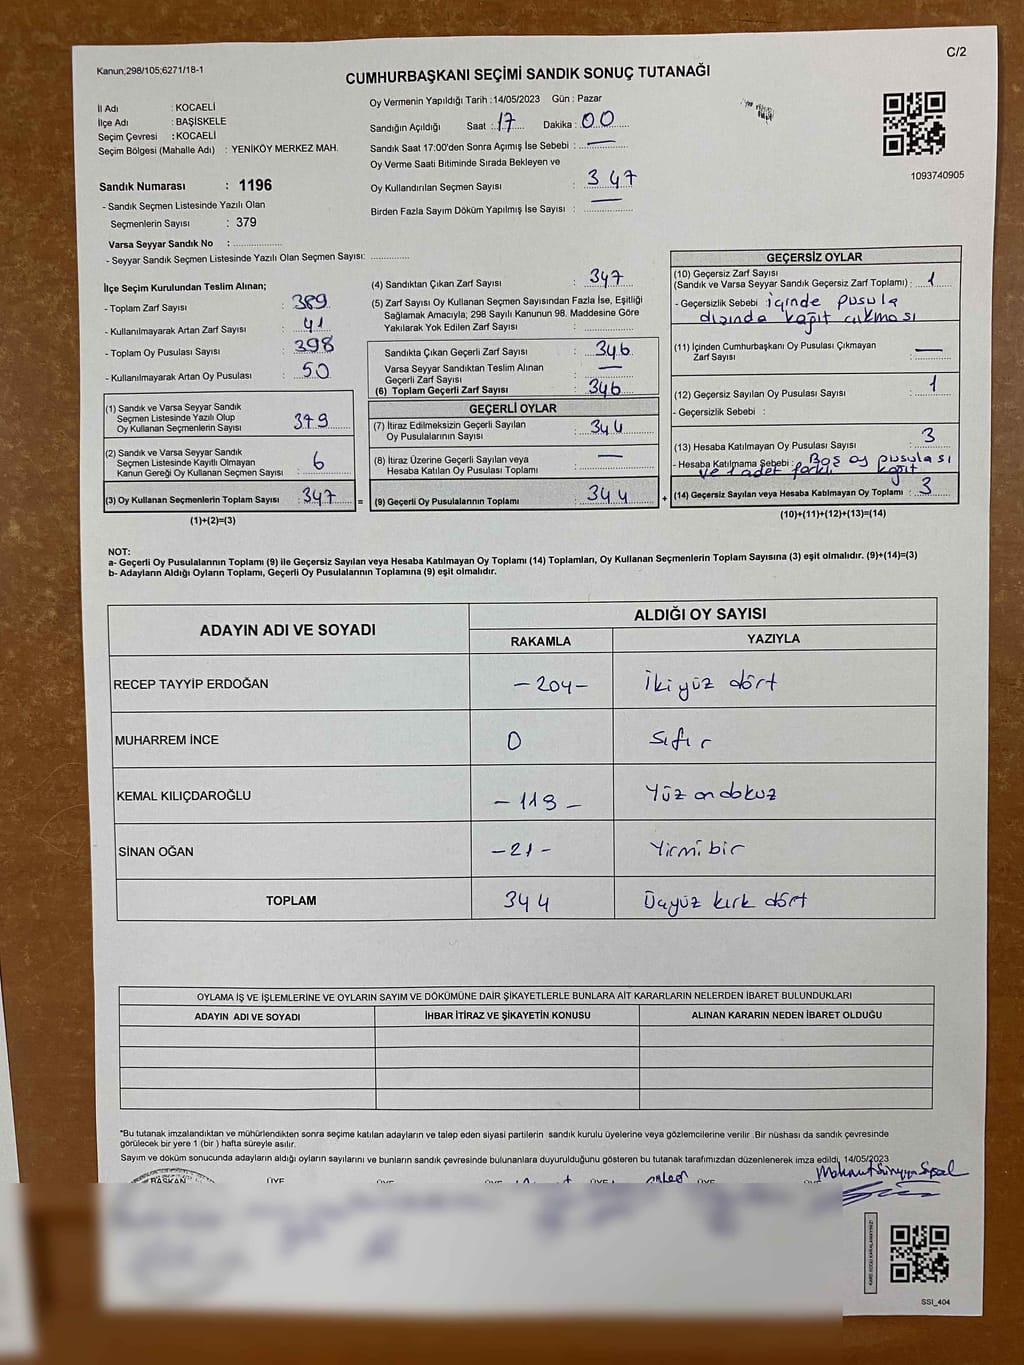 C/2
Kanun;298/105;6271/18-1
CUMHURBAŞKANI SEÇİMİ SANDIK SONUÇ TUTANAĞI
İl Adı : KOCAELİ
İlçe Adı : BAŞİSKELE
Seçim Çevresi : KOCAELİ
Seçim Bölgesi (Mahalle Adı) : YENİKÖY MERKEZ MAH.
Sandık Numarası : 1196
- Sandık Seçmen Listesinde Yazılı Olan
Seçmenlerin Sayısı : 379
Varsa Seyyar Sandık No :
- Seyyar Sandık Seçmen Listesinde Yazılı Olan Seçmen Sayısı:
Oy Vermenin Yapıldığı Tarih :14/05/2023 Gün : Pazar
Sandığın Açıldığı Saat : 17 Dakika : 00
Sandık Saat 17:00'den Sonra Açımış İse Sebebi : —
Oy Verme Saati Bitiminde Sırada Bekleyen ve
Oy Kullandırılan Seçmen Sayısı : 347
Birden Fazla Sayım Döküm Yapılmış İse Sayısı : —
1093740905
İlçe Seçim Kurulundan Teslim Alınan;
- Toplam Zarf Sayısı : 389
- Kullanılmayarak Artan Zarf Sayısı : 41
- Toplam Oy Pusulası Sayısı : 398
- Kullanılmayarak Artan Oy Pusulası : 50
(1) Sandık ve Varsa Seyyar Sandık
Seçmen Listesinde Yazılı Olup
Oy Kullanan Seçmenlerin Sayısı : 379
(2) Sandık ve Varsa Seyyar Sandık
Seçmen Listesinde Kayıtlı Olmayan
Kanun Gereği Oy Kullanan Seçmen Sayısı : 6
(3) Oy Kullanan Seçmenlerin Toplam Sayısı : 347 =
(1)+(2)=(3)
(4) Sandıktan Çıkan Zarf Sayısı : 347
(5) Zarf Sayısı Oy Kullanan Seçmen Sayısından Fazla İse, Eşitliği
Sağlamak Amacıyla; 298 Sayılı Kanunun 98. Maddesine Göre
Yakılarak Yok Edilen Zarf Sayısı :
Sandıkta Çıkan Geçerli Zarf Sayısı : 346
Varsa Seyyar Sandıktan Teslim Alınan
Geçerli Zarf Sayısı : —
(6) Toplam Geçerli Zarf Sayısı : 346
GEÇERLİ OYLAR
(7) İtiraz Edilmeksizin Geçerli Sayılan
Oy Pusulalarının Sayısı : 344
(8) İtiraz Üzerine Geçerli Sayılan veya
Hesaba Katılan Oy Pusulası Toplamı : —
(9) Geçerli Oy Pusulalarının Toplamı : 344 +
GEÇERSİZ OYLAR
(10) Geçersiz Zarf Sayısı
(Sandık ve Varsa Seyyar Sandık Geçersiz Zarf Toplamı) : 1
- Geçersizlik Sebebi : içinde pusula
dışında kağıt çıkması
(11) İçinden Cumhurbaşkanı Oy Pusulası Çıkmayan
Zarf Sayısı : —
(12) Geçersiz Sayılan Oy Pusulası Sayısı : 1
- Geçersizlik Sebebi :
(13) Hesaba Katılmayan Oy Pusulası Sayısı : 3
- Hesaba Katılmama Sebebi : Boş oy pusulası
ve 1 adet farklı kağıt
(14) Geçersiz Sayılan veya Hesaba Katılmayan Oy Toplamı : 3
(10)+(11)+(12)+(13)=(14)
NOT:
a- Geçerli Oy Pusulalarının Toplamı (9) ile Geçersiz Sayılan veya Hesaba Katılmayan Oy Toplamı (14) Toplamları, Oy Kullanan Seçmenlerin Toplam Sayısına (3) eşit olmalıdır. (9)+(14)=(3)
b- Adayların Aldığı Oyların Toplamı, Geçerli Oy Pusulalarının Toplamına (9) eşit olmalıdır.
ADAYIN ADI VE SOYADI ALDIĞI OY SAYISI
RAKAMLA YAZIYLA
RECEP TAYYİP ERDOĞAN -204- İki yüz dört
MUHARREM İNCE 0 sıfır
KEMAL KILIÇDAROĞLU -119- Yüz on dokuz
SİNAN OĞAN -21- Yirmi bir
TOPLAM 344 Üçyüz kırk dört
OYLAMA İŞ VE İŞLEMLERİNE VE OYLARIN SAYIM VE DÖKÜMÜNE DAİR ŞİKAYETLERLE BUNLARA AİT KARARLARIN NELERDEN İBARET BULUNDUKLARI
ADAYIN ADI VE SOYADI İHBAR İTİRAZ VE ŞİKAYETİN KONUSU ALINAN KARARIN NEDEN İBARET OLDUĞU
*Bu tutanak imzalandıktan ve mühürlendikten sonra seçime katılan adayların ve talep eden siyasi partilerin sandık kurulu üyelerine veya gözlemcilerine verilir. Bir nüshası da sandık çevresinde
görülecek bir yere 1 (bir) hafta süreyle asılır.
Sayım ve döküm sonucunda adayların aldığı oyların sayılarını ve bunların sandık çevresinde bulunanlara duyurulduğunu gösteren bu tutanak tarafımızdan düzenlenerek imza edildi, 14/05/2023
BAŞKAN ÜYE ÜYE ÜYE ÜYE ÜYE
SSI_404